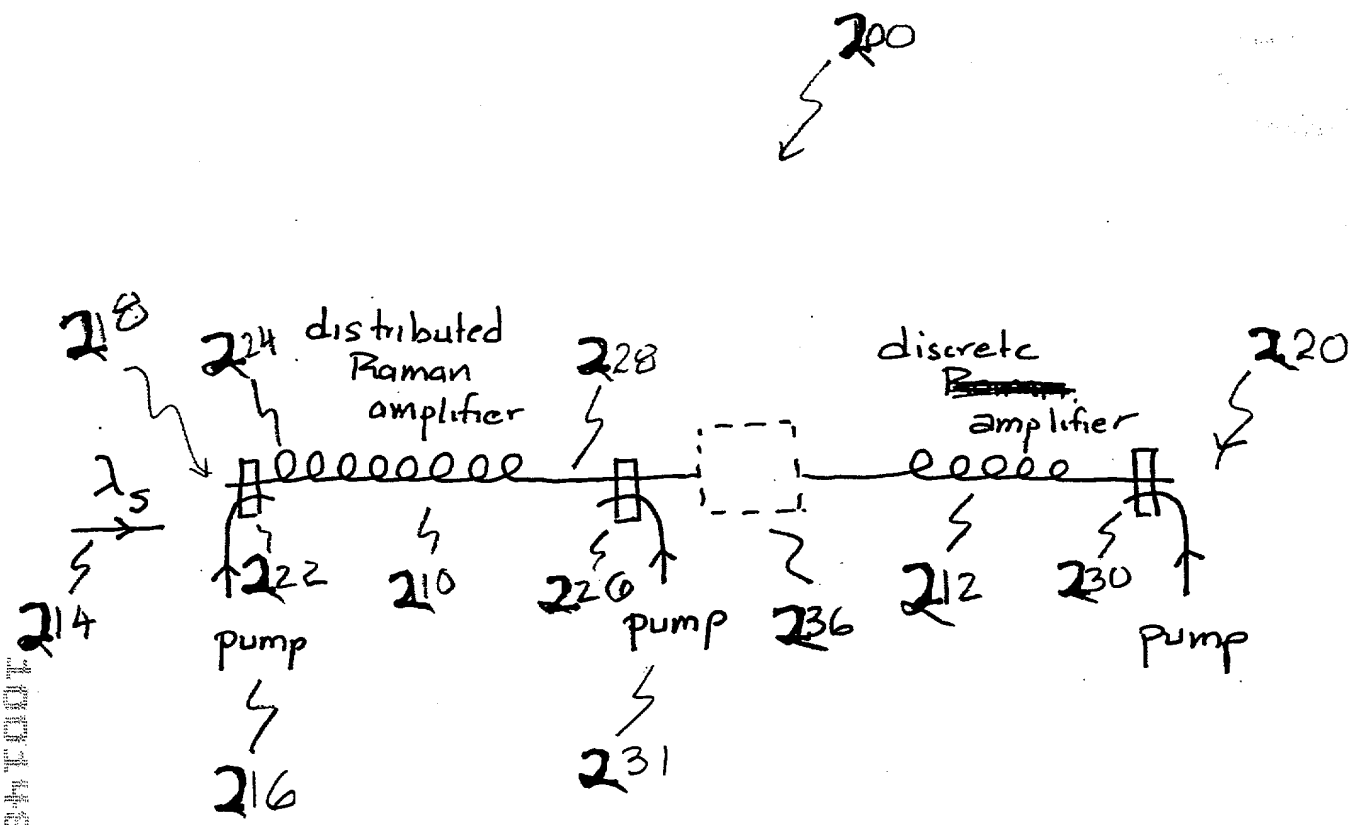 200
218
224
distributed
Raman
amplifier
228
discrete
amplifier
220
λs
214
222
210
226
236
212
230
pump
216
pump
231
pump